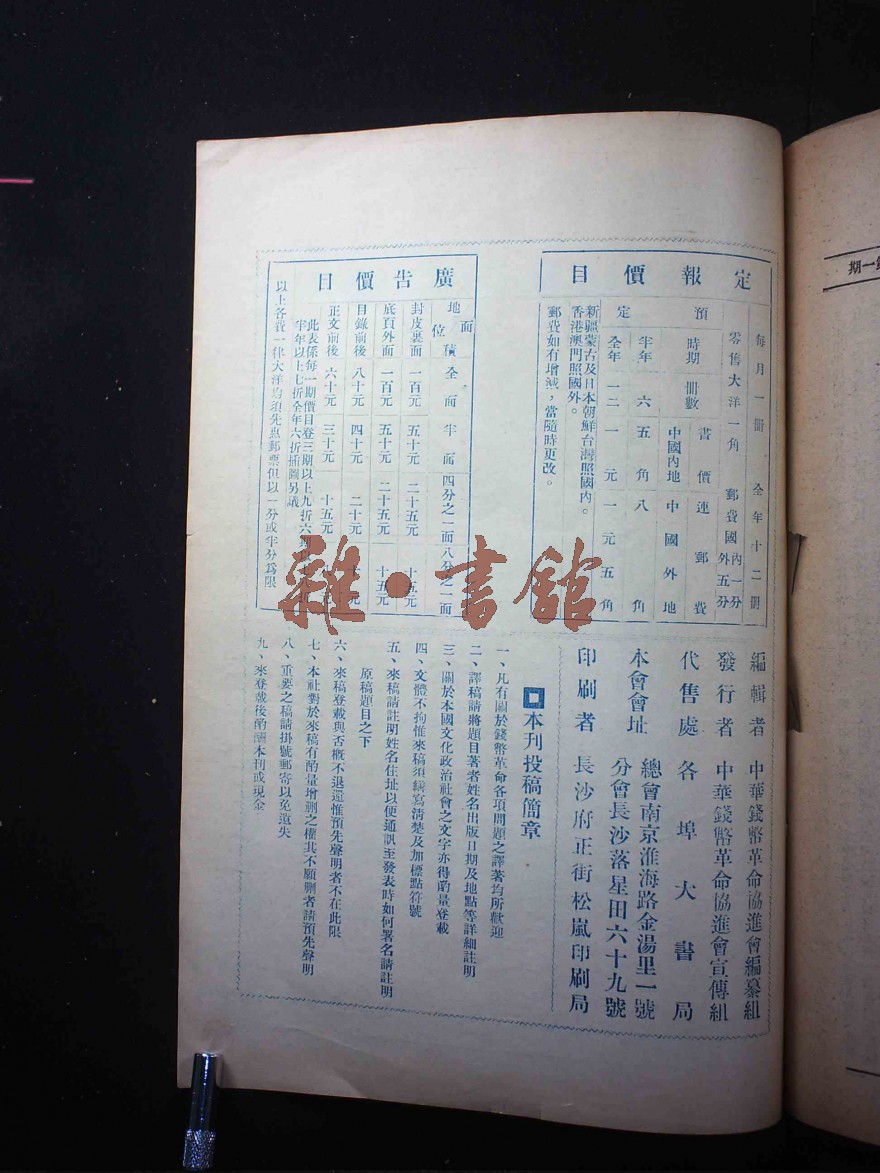 定報價目
每月一冊 全年十二冊
零售大洋一角 郵費國內一分 外五分
預定
時期 冊數 書價連郵費
中國內地 中國外地
半年 六 五角 八角
全年 一二 一元 一元五角
新疆蒙古及日本朝鮮台灣照國內。
香港澳門照國外。
郵費如有增減，當隨時更改。
廣告價目
地位 面積 全面 半面 四分之一面 八分之一面
封皮裏面 一百元 五十元 二十五元 十五元
底頁外面 一百元 五十元 二十五元 十五元
目錄前後 八十元 四十元 二十元
正文前後 六十元 三十元 十五元
此表係每一期價目登三期以上九折六
半年以上七折全年六折插圖另議
以上各費一律大洋均須先惠郵票但以一分或半分為限
編輯者 中華錢幣革命協進會編纂組
發行者 中華錢幣革命協進會宣傳組
代售處 各埠大書局
本會會址 總會南京淮海路金湯里一號
分會長沙落星田六十九號
印刷者 長沙府正街松嵐印刷局
本刊投稿簡章
一、凡有關於錢幣革命各項問題之譯著均所歡迎
二、譯稿請將題目著者姓名出版日期及地點等詳細註明
三、關於本國文化政治社會之文字亦得酌量登載
四、文體不拘惟來稿須繕寫清楚及加標點符號
五、來稿請註明姓名住址以便通訊至發表時如何署名請註明
原稿題目之下
六、來稿登載與否概不退還惟預先聲明者不在此限
七、本社對於來稿有酌量增刪之權其不願刪者請預先聲明
八、重要之稿請掛號郵寄以免遺失
九、來登載後酌酬本刊或現金
雜·書館
一期